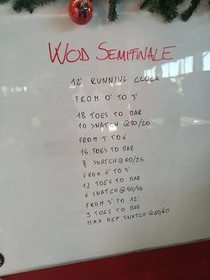 WOD SEMIFINALE
12' RUNNING CLOCK
FROM 0' TO 3'
18 TOES TO BAR
10 SNATCH @30/20
FROM 3' TO 6'
15 TOES TO BAR
8 SNATCH @40/25
FROM 6' TO 9'
12 TOES TO BAR
6 SNATCH @50/35
FROM 9' TO 12'
9 TOES TO BAR
MAX REP SNATCH @60/40